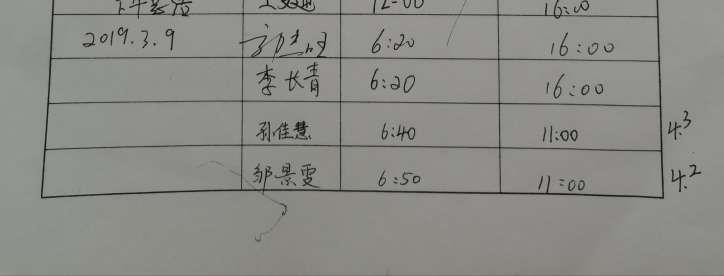 12-00 16:00
2019.3.9 6:20 16:00
李长青 6:20 16:00
孙佳慧 6:40 11:00 4.3
邹景雯 6:50 11:00 4.2